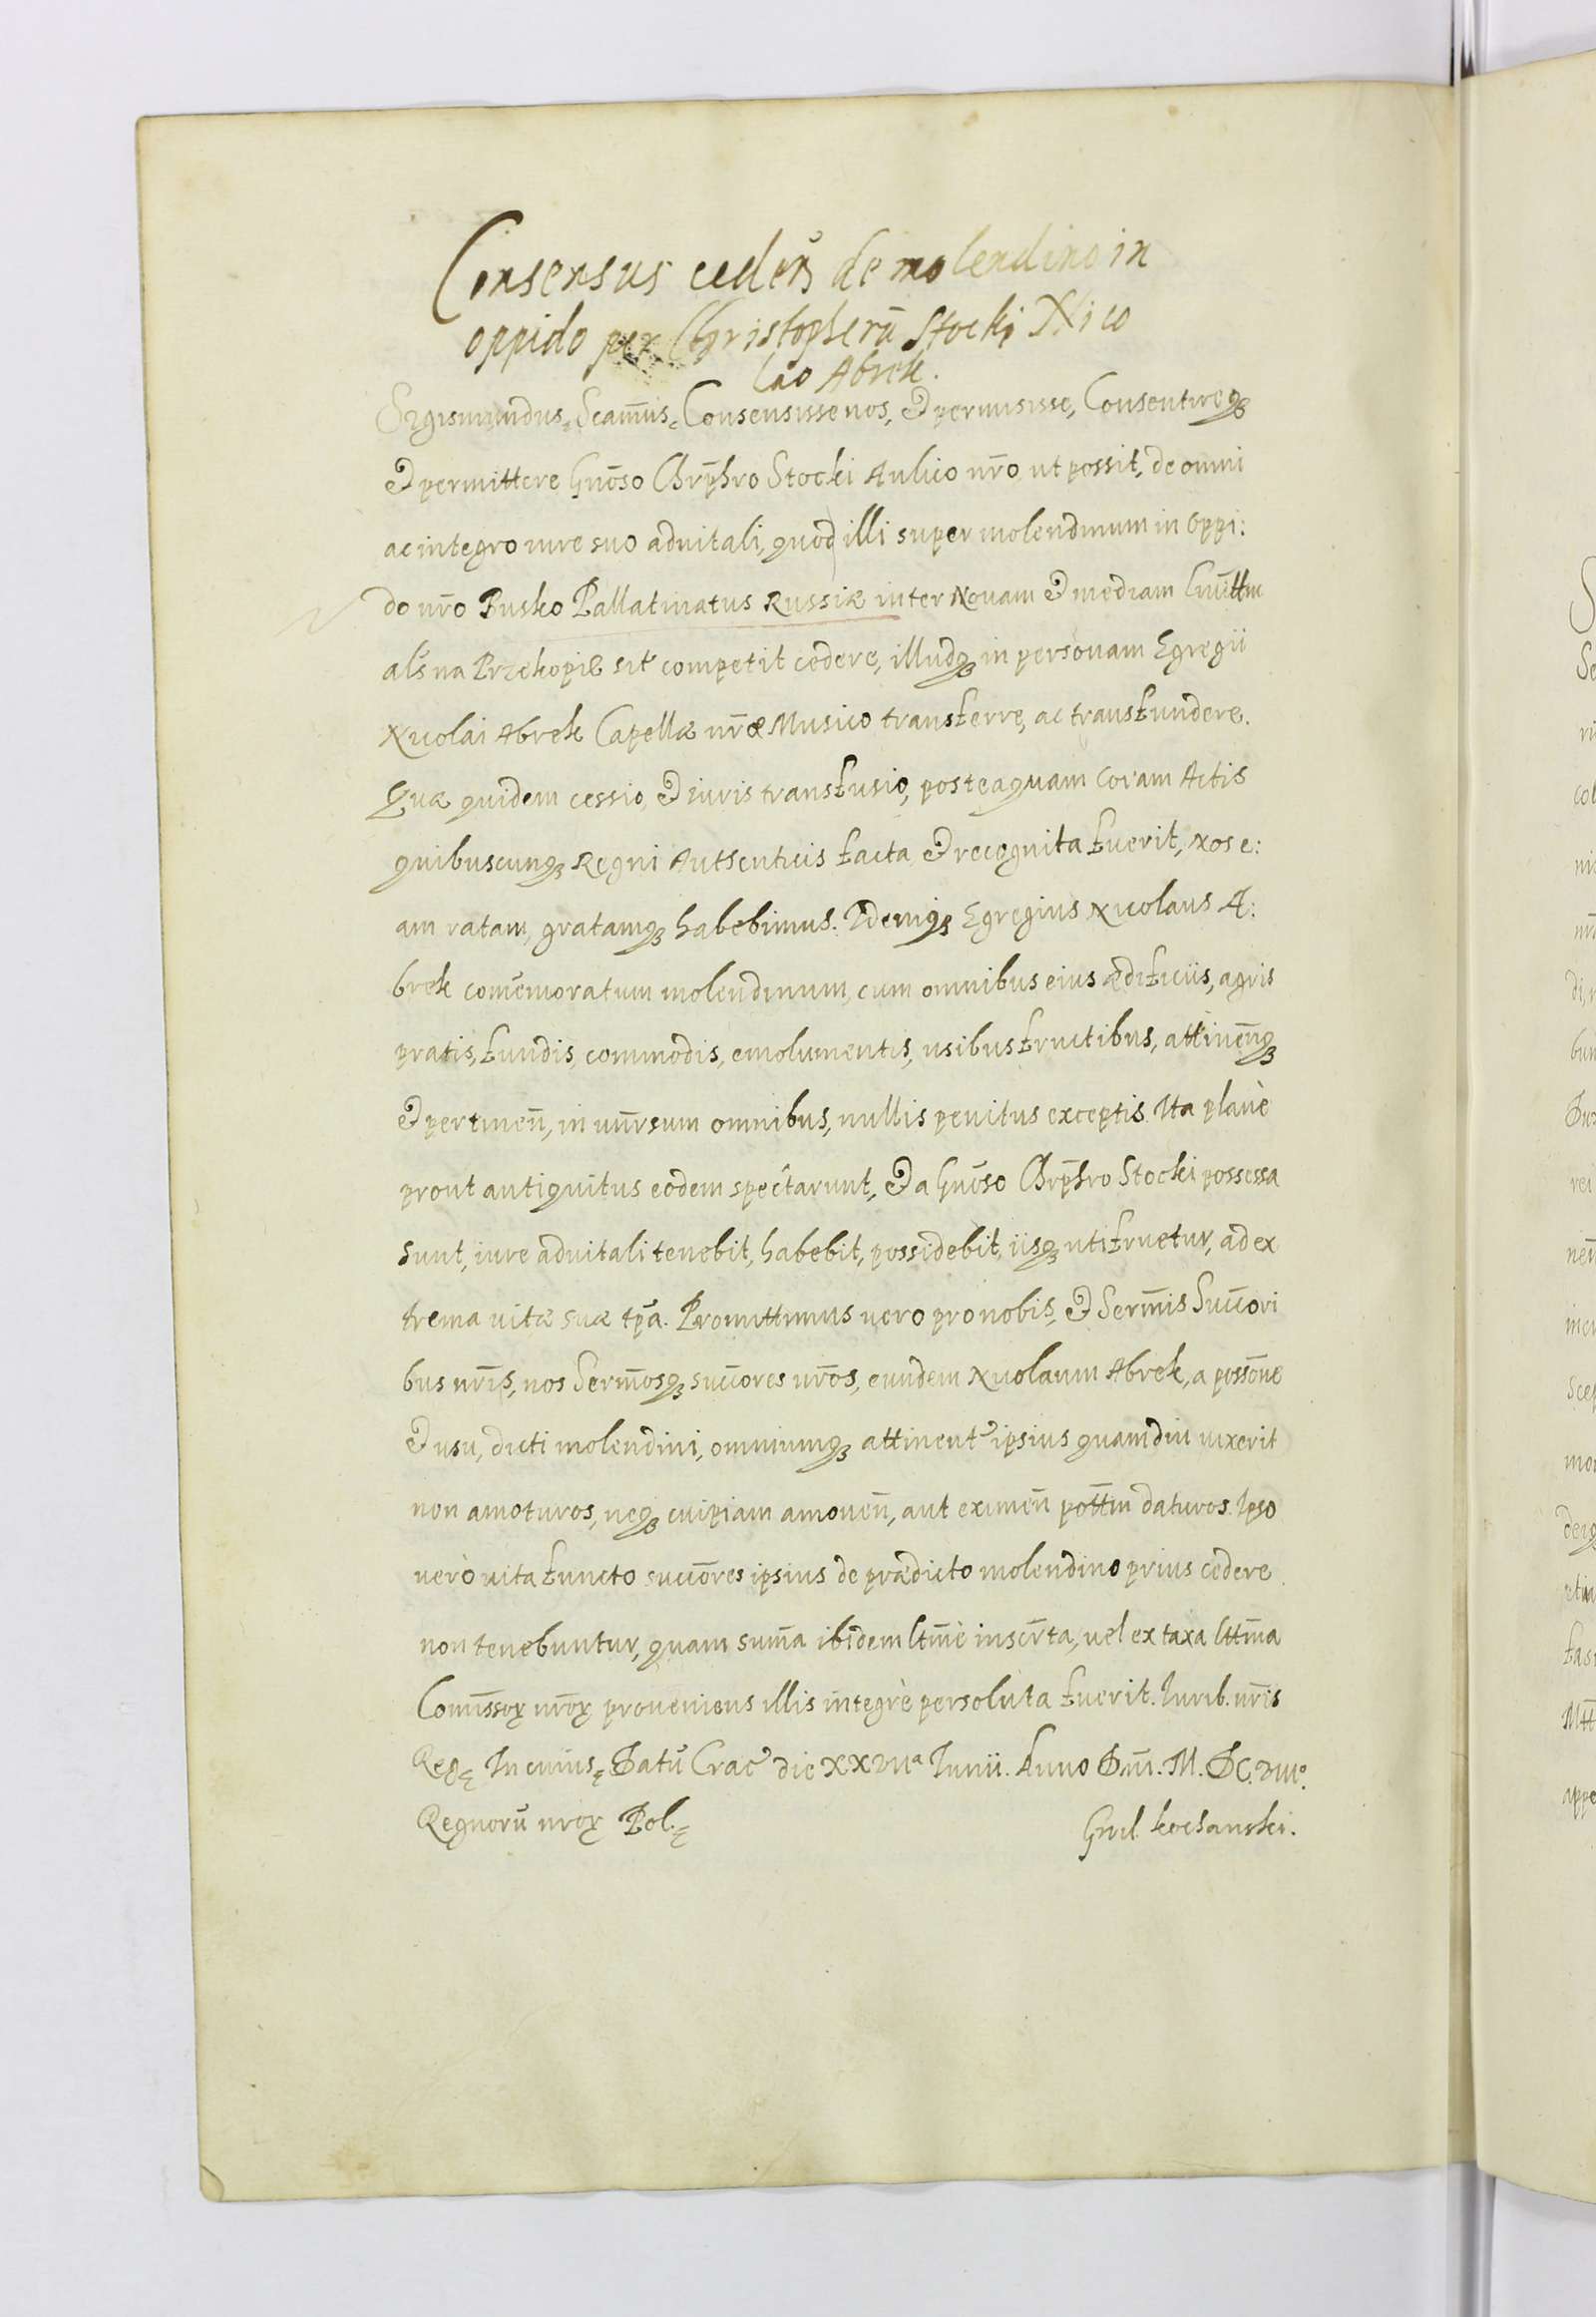 Consensus cedeñ de molendino in
oppido per Christopherũ Stocki Nico
lao Abrek.
Sigismundus, Scam̃us, Consensisse nos, et permisisse, Consentireqꝫ
et permittere Gnõso Chrp̃hro Stocki Aulico nr̃o, ut possit, de omni
ac integro iure suo aduitali, quod illi super molendinum in Oppi:
do nr̃o Busko Pallatinatus Russiæ inter Nouam et mediam
als na Przekopie sit competit cedere, illudqꝫ in personam Egregii
Nicolai Abrek Capellæ nr̃æ Musico transferre, ac transfundere.
Quæ quidem cessio, et iuris transfusio, posteaquam coram Actis
quibuscunqꝫ Regni Authenticis facta et recognita fuerit, nos e:
am ratam, gratamqꝫ habebimus. Idemqꝫ Egregius Nicolaus A:
brek com̃emoratum molendinum, cum omnibus eius ædificiis, agris
pratis, fundis, commodis, emolumentis, usibus fructibus, attineñqꝫ
et pertineñ, in uñrsum omnibus, nullis penitus exceptis. Ita planè
prout antiquitus eodem spectarunt, et a Gnõso Chrp̃hro Stocki possessa
sunt, iure aduitali tenebit, habebit, possidebit, iisqꝫ utifruetur, ad ex
trema uitæ suæ tp̃a. Promittimus uero pro nobis, et Serm̃is Succ̃ori
bus nr̃is, nos Serm̃osqꝫ succ̃ores nr̃os, eundem Nicolaum Abrek, a possõne
et usu, dicti molendini, omniumqꝫ attinent̃ ipsius quamdiu uixerit
non amoturos, neqꝫ cuipiam amoueñ, aut eximeñ pott̃m daturos. Ipso
uerò uita functo succ̃ores ipsius de prædicto molendino prius cedere
non tenebuntur, quam sum̃a ibidem ltm̃è inscr̃ta, uel ex taxa lttm̃a
Com̃issoꝝ nr̃oꝝ proueniens illis integrè persoluta fuerit. Iurib. nr̃is
Reg. In cuius, Datũ Crac̃ die XXVIIa Iunii. Anno Dm̃i. M. DC. VIIo.
Regnorũ nr̃oꝝ Pol.
Gnd. kochanski.